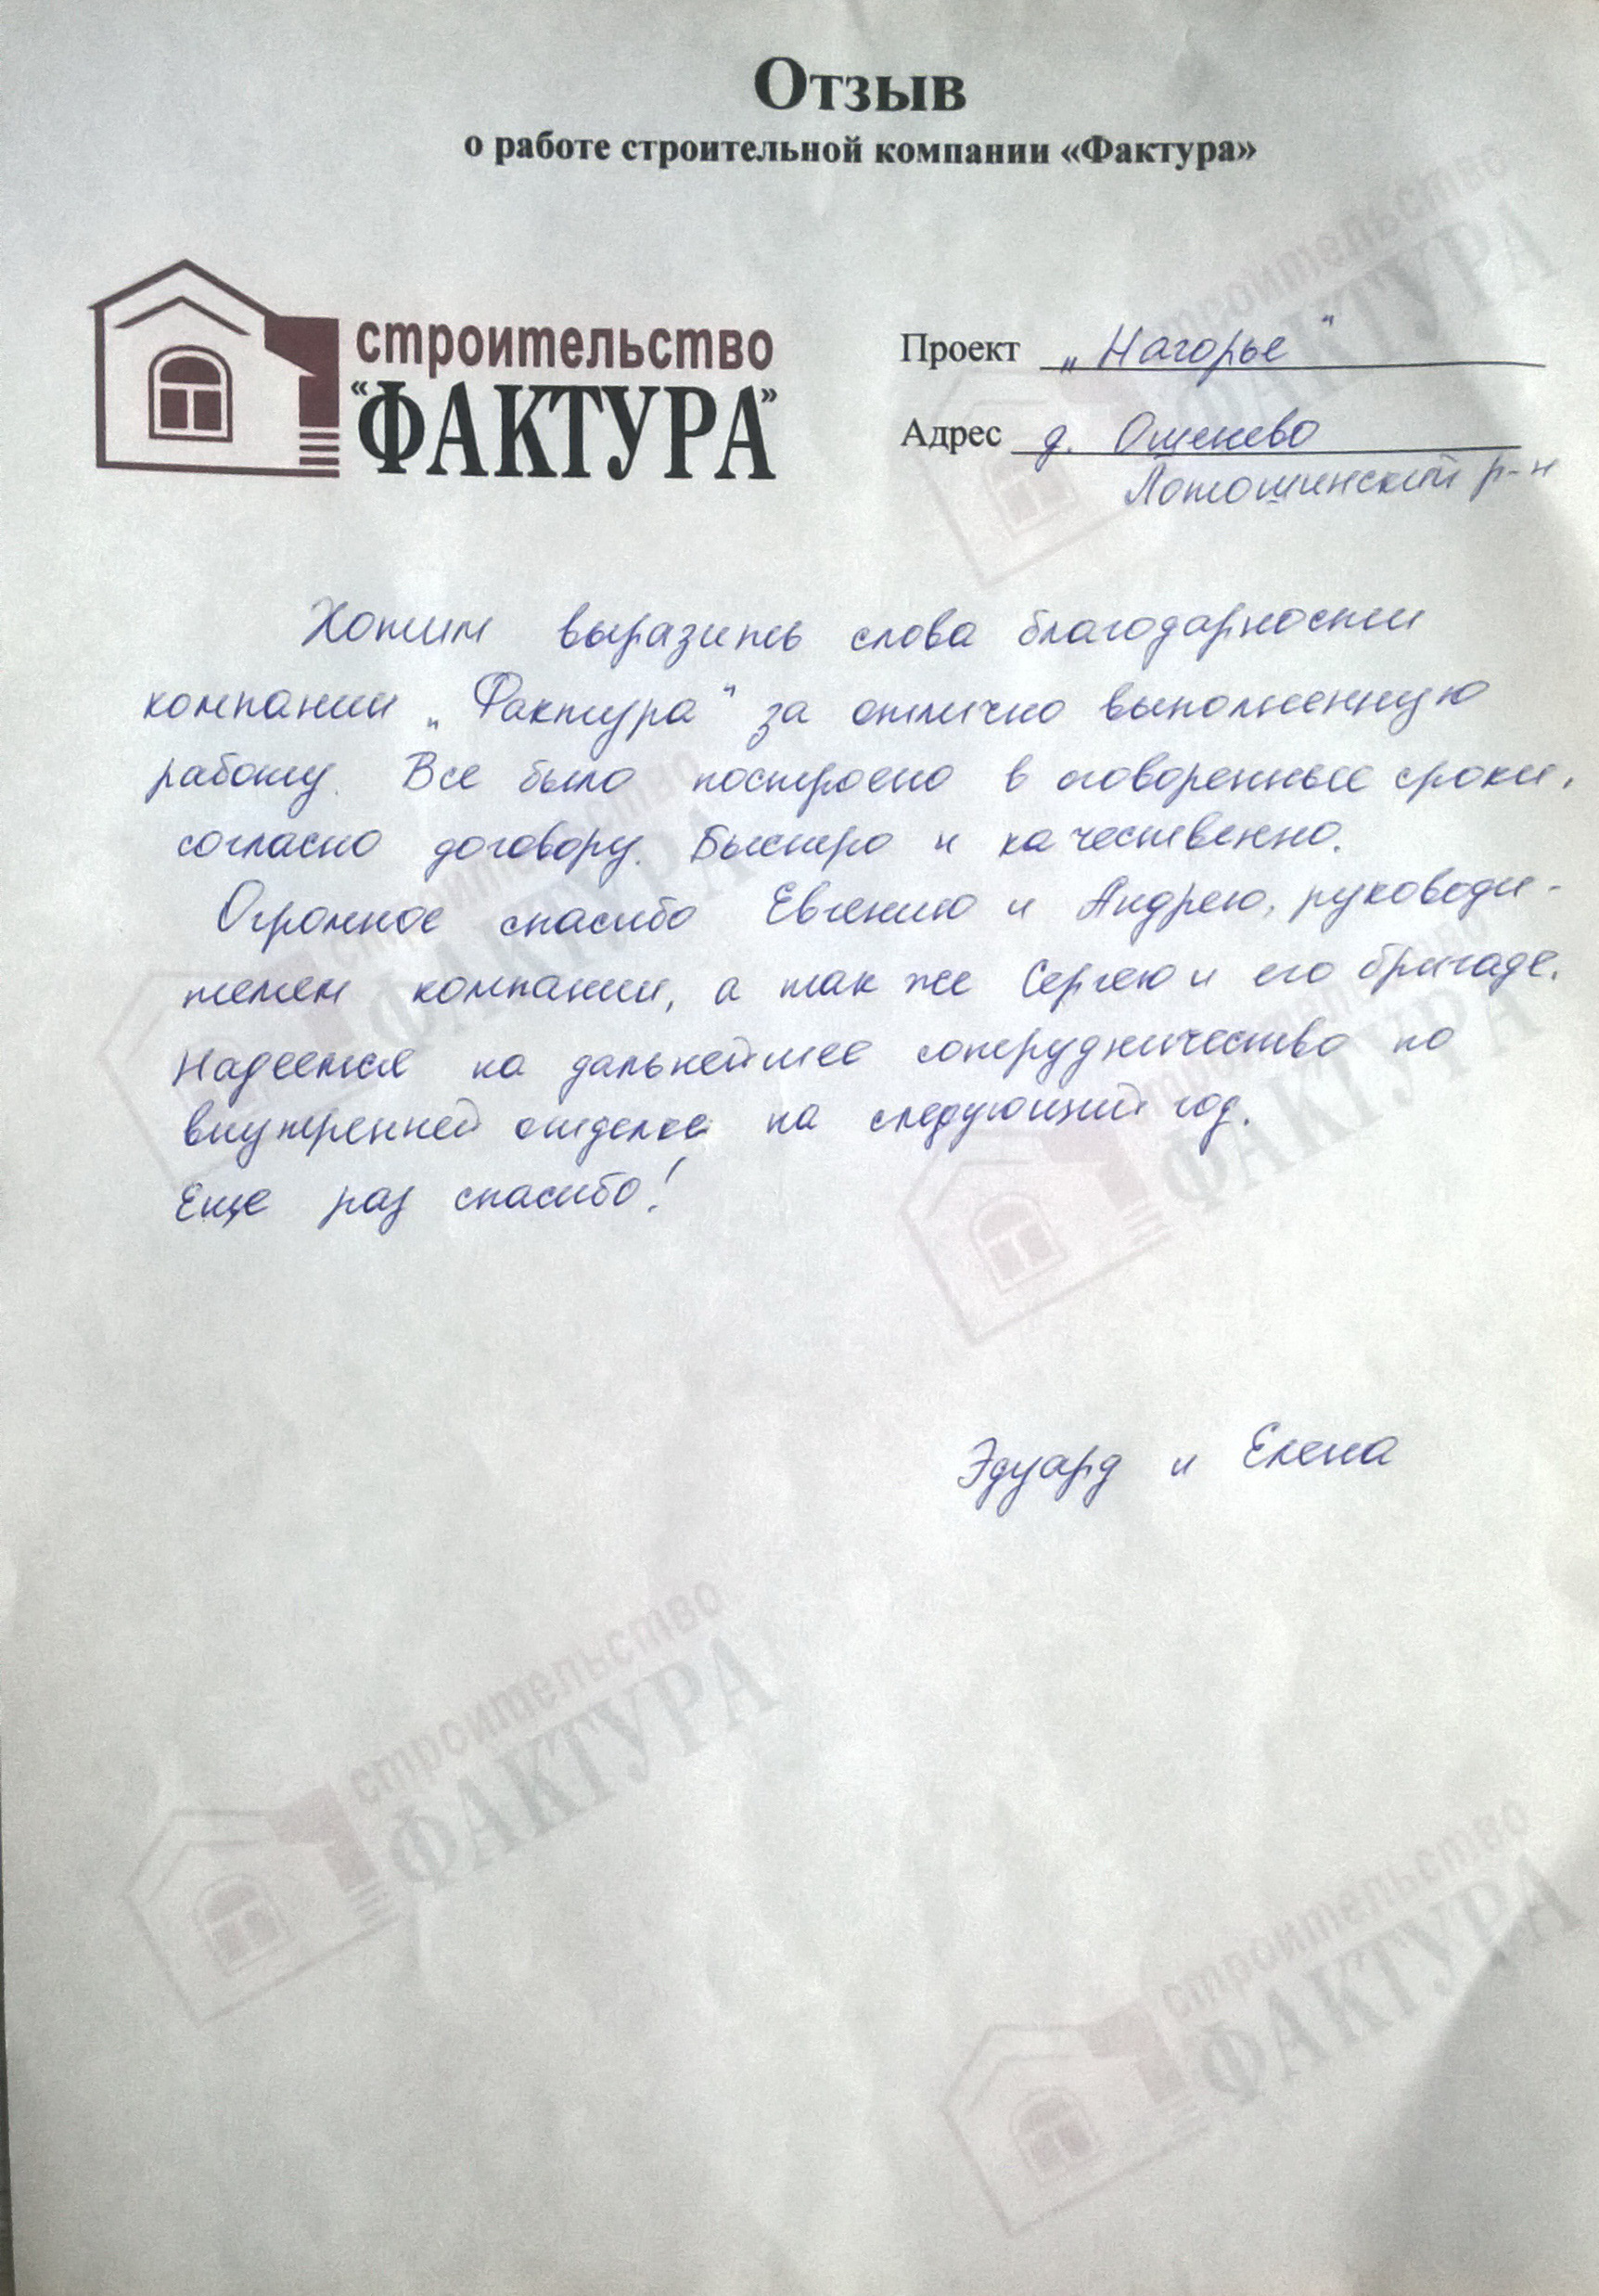 Отзыв
о работе строительной компании «Фактура»
строительство
"ФАКТУРА"
Проект „Нагорье"
Адрес д. Ошенево
Лотошинский р-н
Хотим выразить слова благодарности
компании „Фактура" за отлично выполненную
работу. Все было построено в оговоренные сроки,
согласно договору. Быстро и качественно.
Огромное спасибо Евгению и Андрею, руководи-
телем компании, а так же Сергею и его бригаде.
Надеемся на дальнейшее сотрудничество по
внутренней отделке на следующий год.
Еще раз спасибо!
Эдуард и Елена
строительство
ФАКТУРА
строительство
ФАКТУРА
строительство
ФАКТУРА
строительство
ФАКТУРА
строительство
ФАКТУРА